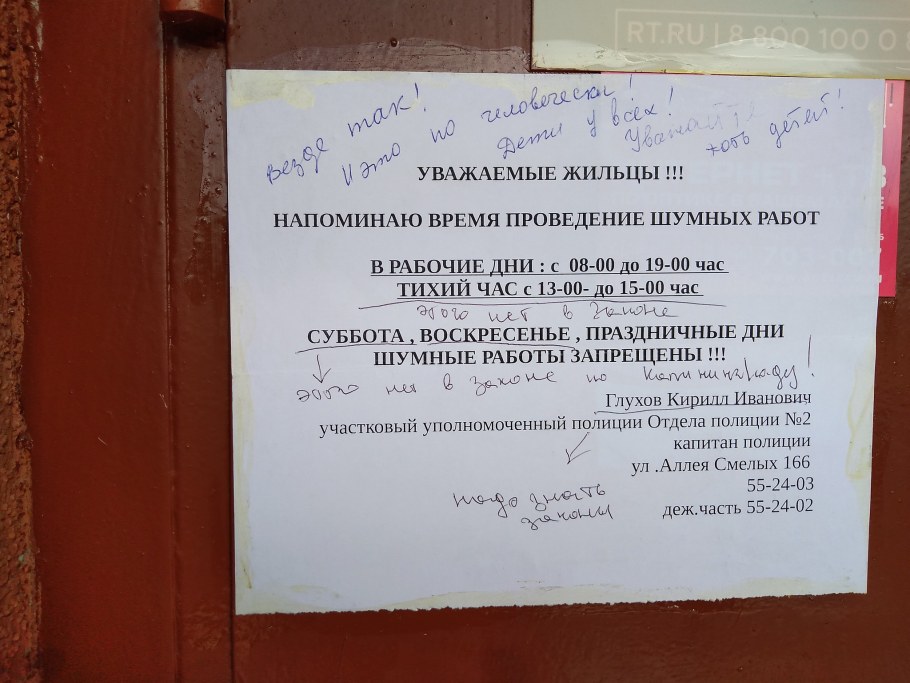 RT.RU | 8 800 100 0 8
Везде так!
И это по человечески!
Дети у всех!
Уважайте
хоть детей!
УВАЖАЕМЫЕ ЖИЛЬЦЫ !!!
НАПОМИНАЮ ВРЕМЯ ПРОВЕДЕНИЕ ШУМНЫХ РАБОТ
В РАБОЧИЕ ДНИ : с 08-00 до 19-00 час
ТИХИЙ ЧАС с 13-00- до 15-00 час
этого нет в законе
СУББОТА , ВОСКРЕСЕНЬЕ , ПРАЗДНИЧНЫЕ ДНИ
ШУМНЫЕ РАБОТЫ ЗАПРЕЩЕНЫ !!!
этого нет в законе по Калининграду!
Глухов Кирилл Иванович
участковый уполномоченный полиции Отдела полиции №2
капитан полиции
ул .Аллея Смелых 166
55-24-03
надо знать
законы
деж.часть 55-24-02